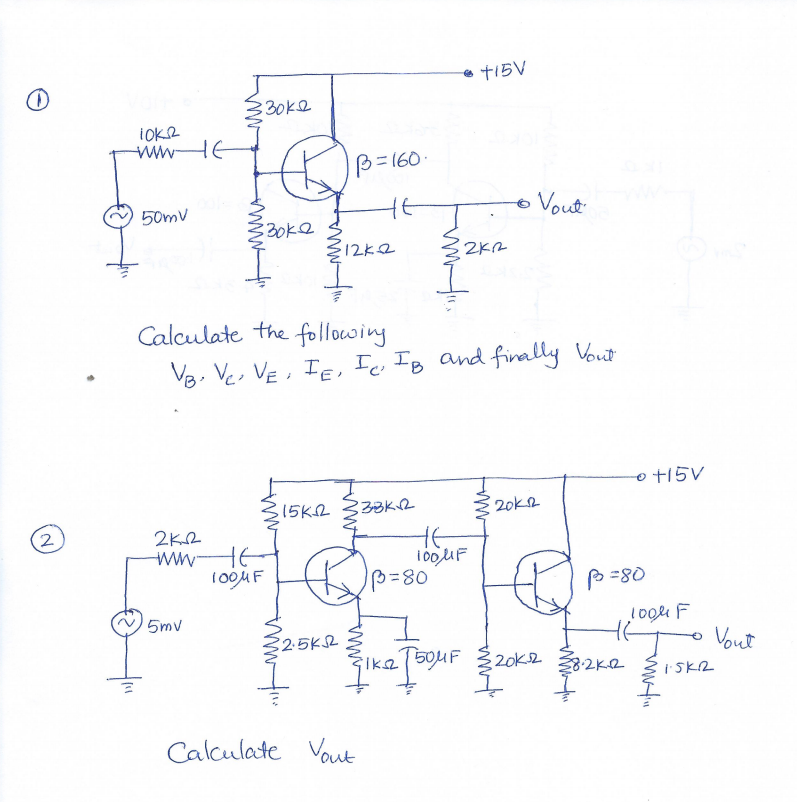 ① +15V
30KΩ
10KΩ
β=160.
50mV
Vout
30KΩ
12KΩ
2KΩ
Calculate the following
VB, VC, VE, IE, IC, IB and finally Vout
② +15V
15KΩ 33KΩ 20KΩ
2KΩ
100μF 100μF
β=80 β=80
100μF
5mV Vout
2.5KΩ 1KΩ 50μF 20KΩ 8.2KΩ 1.5KΩ
Calculate Vout